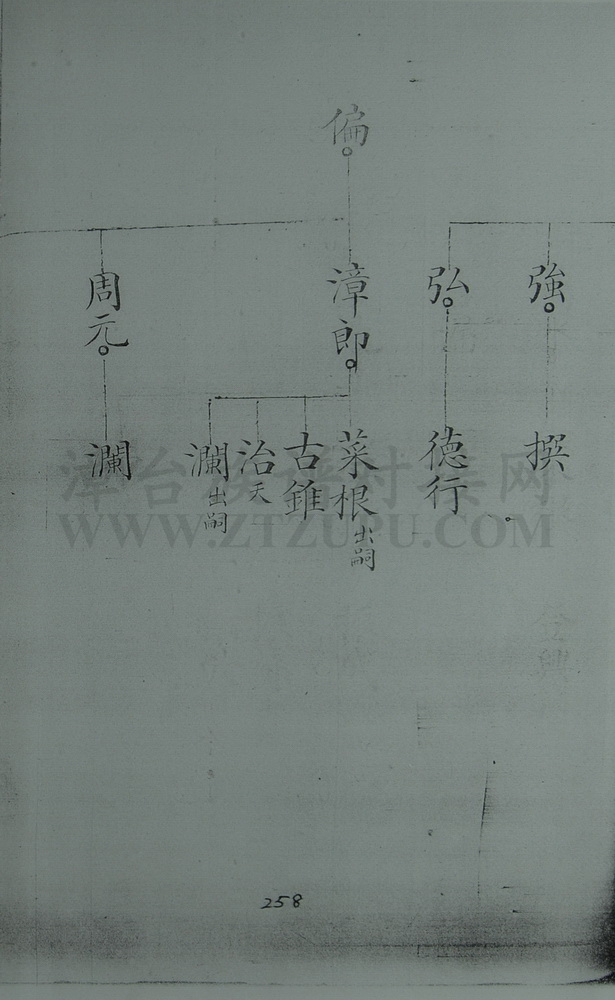 偏
強
弘
漳郎
周元
撰
德行
菜根出嗣
古錐
治夭
瀾出嗣
瀾
漳台族譜對集网
WWW.ZTZUPU.COM
258